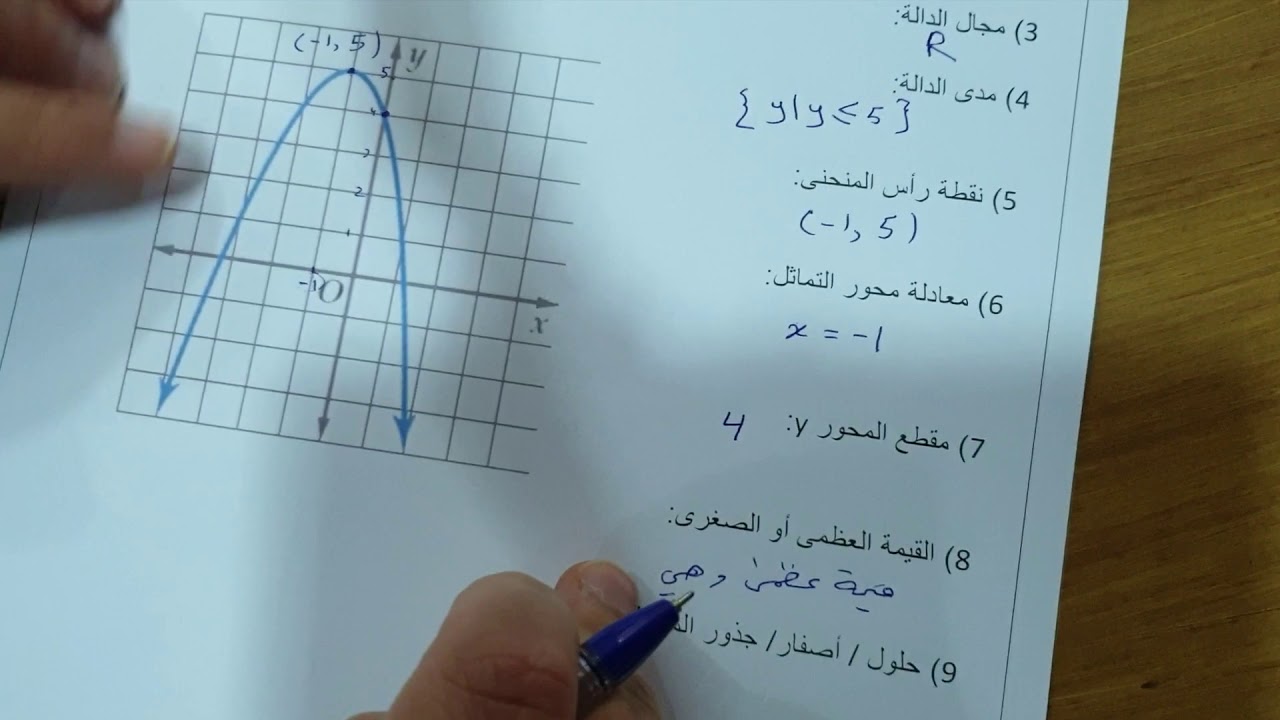 (-1, 5)
y
5
4
3
2
1
-1
O
x
3) مجال الدالة:
R
4) مدى الدالة:
{ y | y ≤ 5 }
5) نقطة رأس المنحنى:
(-1, 5)
6) معادلة محور التماثل:
x = -1
7) مقطع المحور y: 4
8) القيمة العظمى أو الصغرى:
قيمة عظمى وهي
9) حلول / أصفار/ جذور